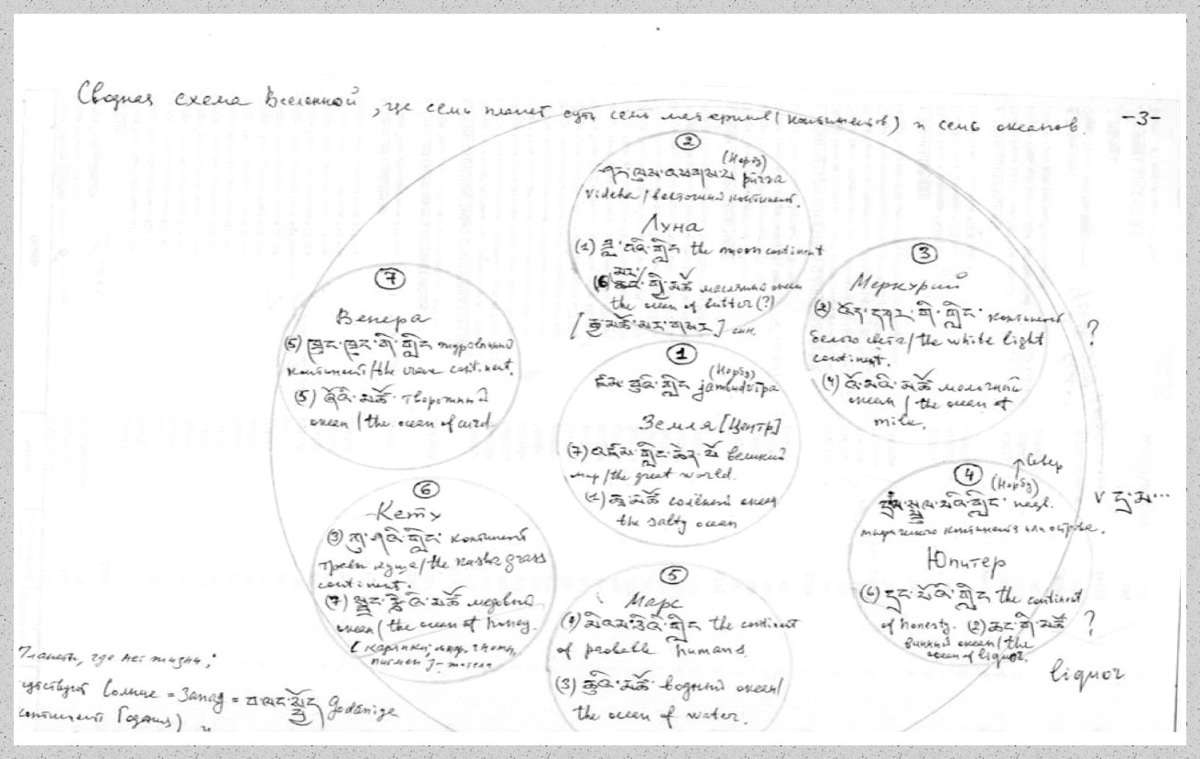 Сводная схема Вселенной, где семь планет суть семь материков (континентов) и семь океанов.
-3-
2
(Норбу)
ཤར་ལུས་འཕགས་པོ pūrva
videha / восточный континент.
Луна
(1) ཟླ་བའི་གླིང the moon continent
(6) མར་ མཚོ масляный океан
the ocean of butter (?)
3
Меркурий
(2) འོད་དཀར་གྱི་གླིང་ континент
белого света / the white light
continent.
?
(4) འོ་མའི་མཚོ молочный
океан / the ocean of
milk.
7
Венера
(5) continent.
(5) ཞོའི་མཚོ творожный
океан / the ocean of curd.
1
(Норбу)
jambudvīpa
Земля [Центр]
(7) великий
мир / the great world.
མཚོ солёный океан
the salty ocean
4
Север
(Норбу)
континента или острова.
Юпитер
(6) the continent
of honesty. (2) ཆང་གི་མཚོ
винный океан / the
ocean of liquor.
?
liquor
6
Кету
(3) ཀུ་ཤའི་གླིང་ континент
травы куша / the kusha grass
continent.
(7) སྦྲང་རྩིའི་མཚོ медовый
океан / the ocean of honey.
5
Марс
མིའམ་ཅིའི་གླིང the continent
of probable humans.
(3) ཆུའི་མཚོ водный океан /
the ocean of water.
Планеты, где нет жизни,
Солнце = Запад = བ་ལང་སྤྱོད Godānīya
континент